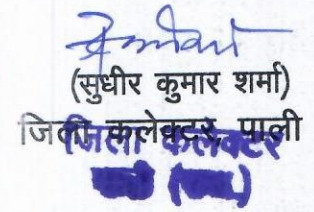 (सुधीर कुमार शर्मा)
जिला कलेक्टर, पाली
जिला कलेक्टर